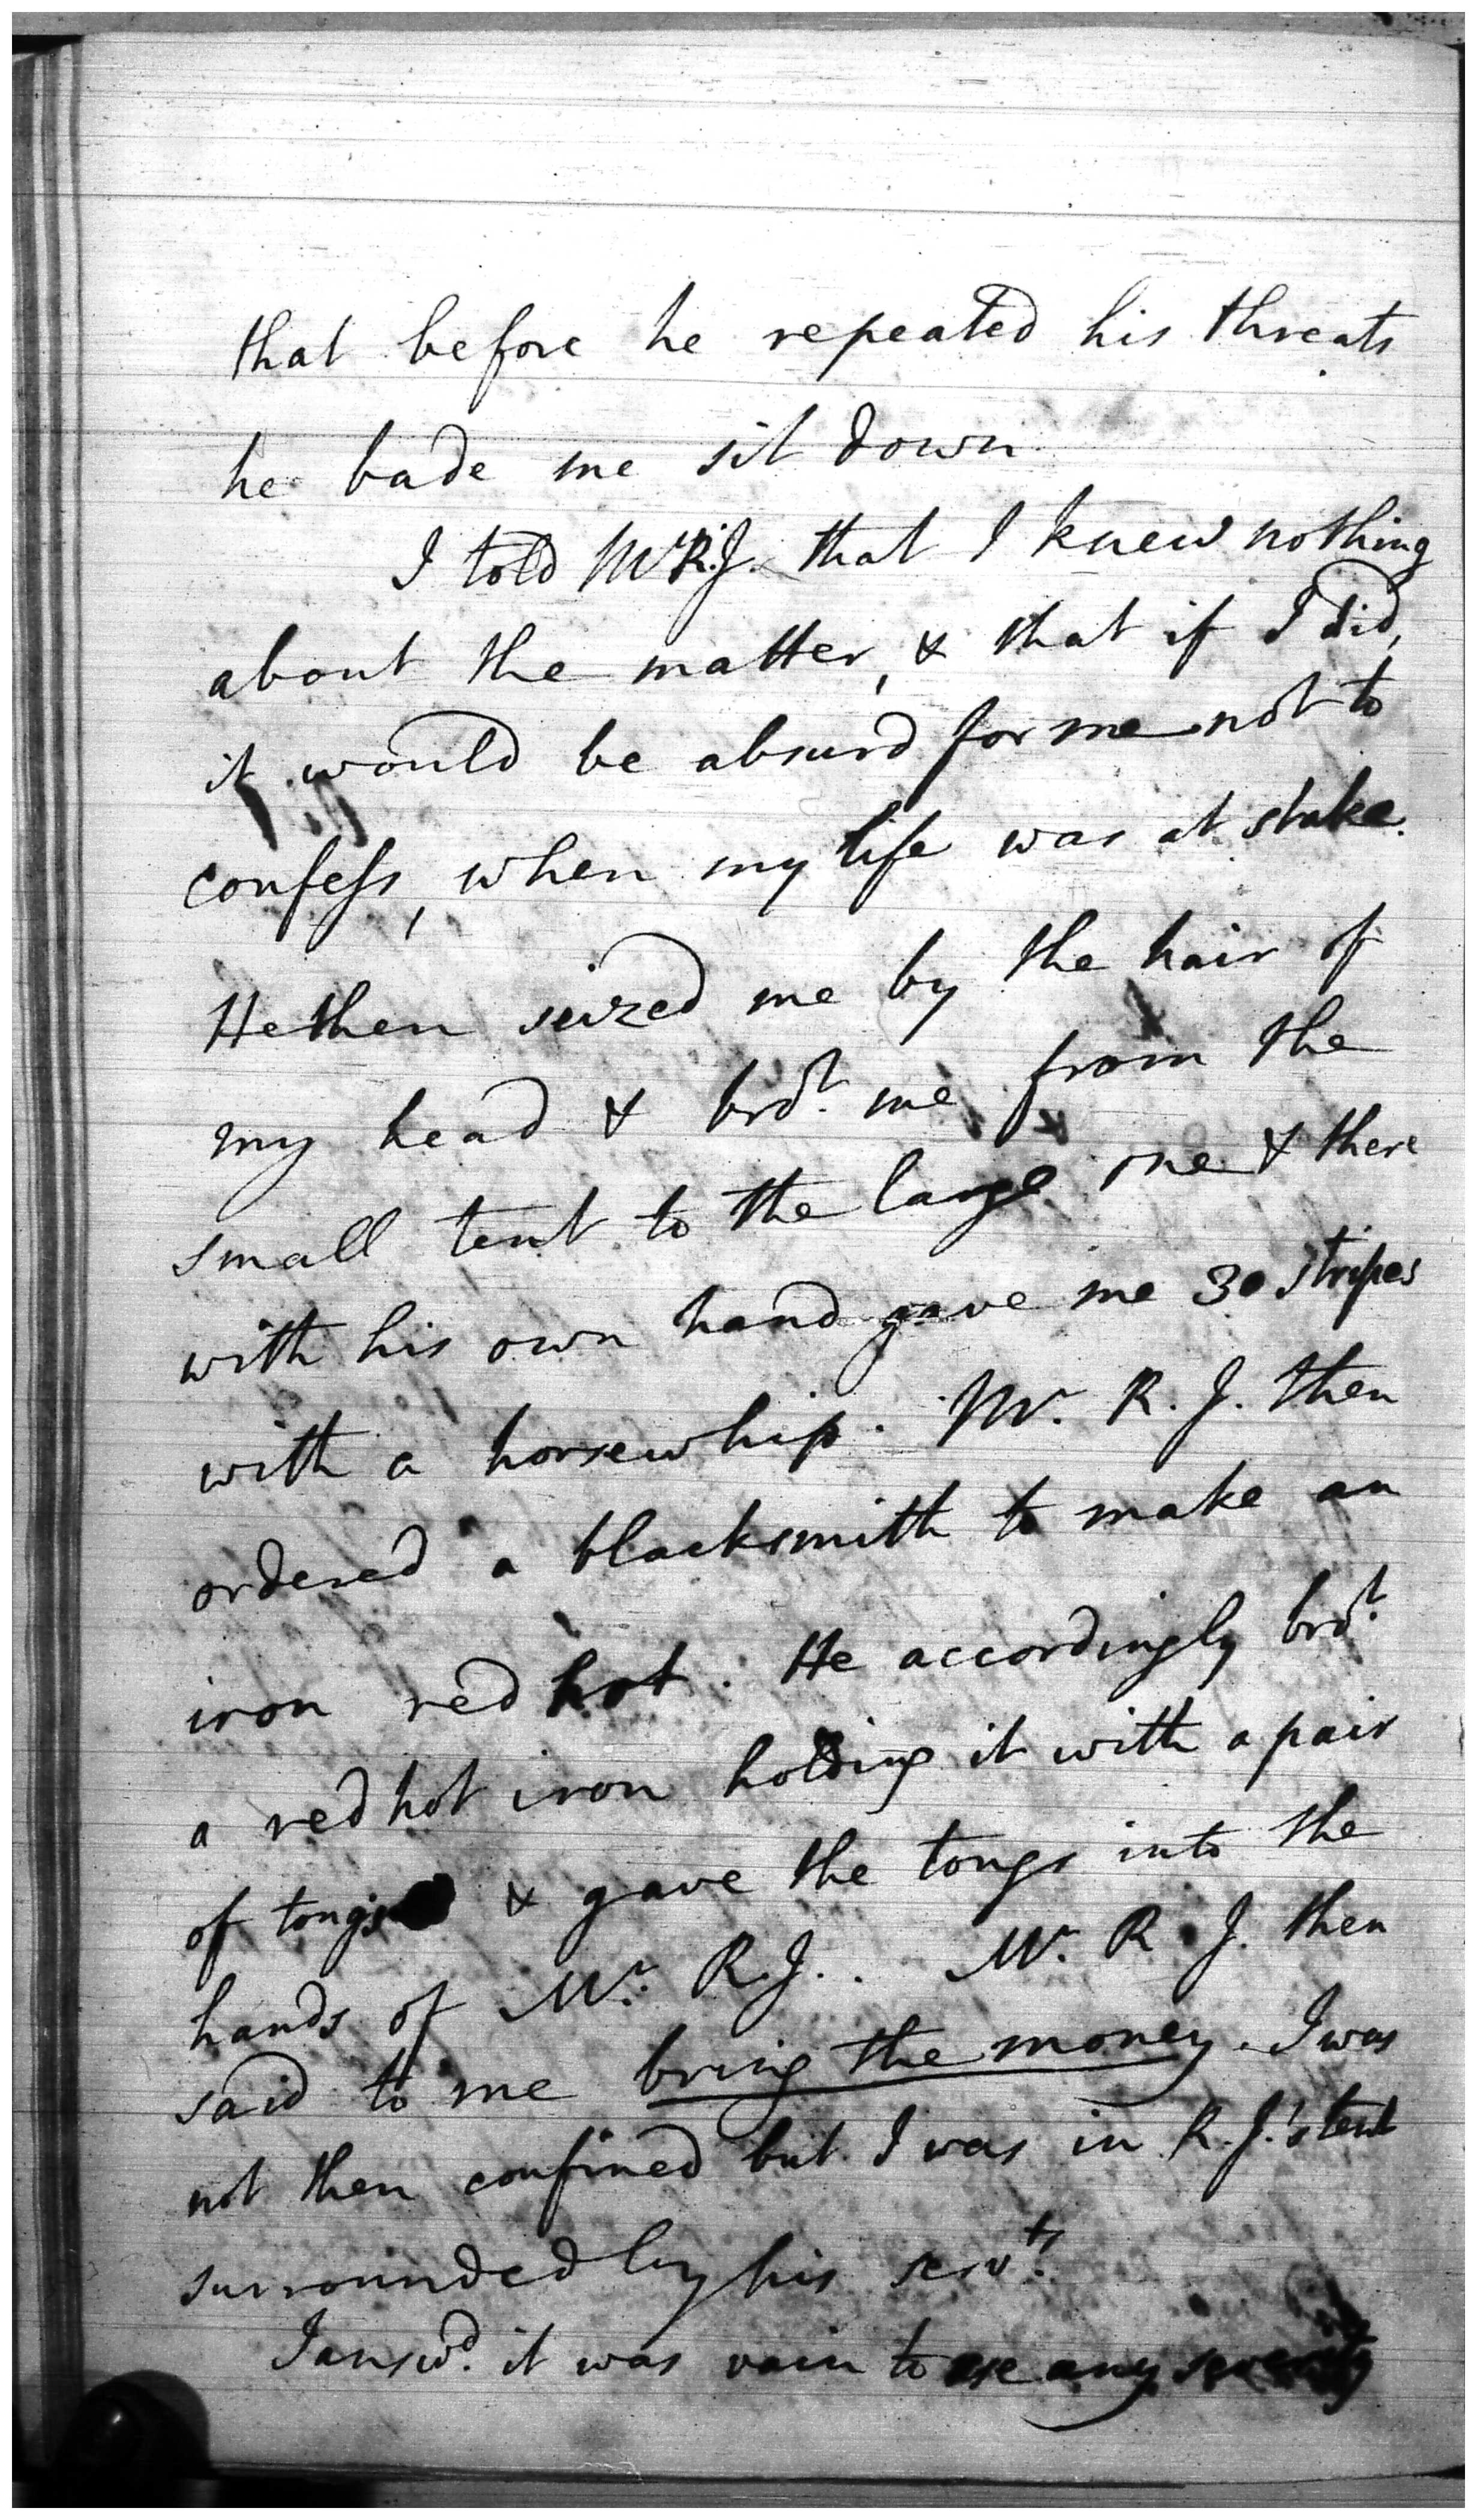 that before he repeated his threats
he bade me sit down
I told Mr R.J. that I knew nothing
about the matter, & that if I did,
it would be absurd for me not to
confess, when my life was at stake.
He then seized me by the hair of
my head & brot. me from the
small tent to the large one & there
with his own hand gave me 30 stripes
with a horsewhip. Mr. R. J. then
ordered a blacksmith to make an
iron red hot. He accordingly brot.
a red hot iron holding it with a pair
of tongs & gave the tongs into the
hands of Mr. R. J.. Mr. R. J. then
said to me bring the money. I was
not then confined but I was in R. J.'s tent
surrounded by his servts.
I answd. it was vain to use any severity